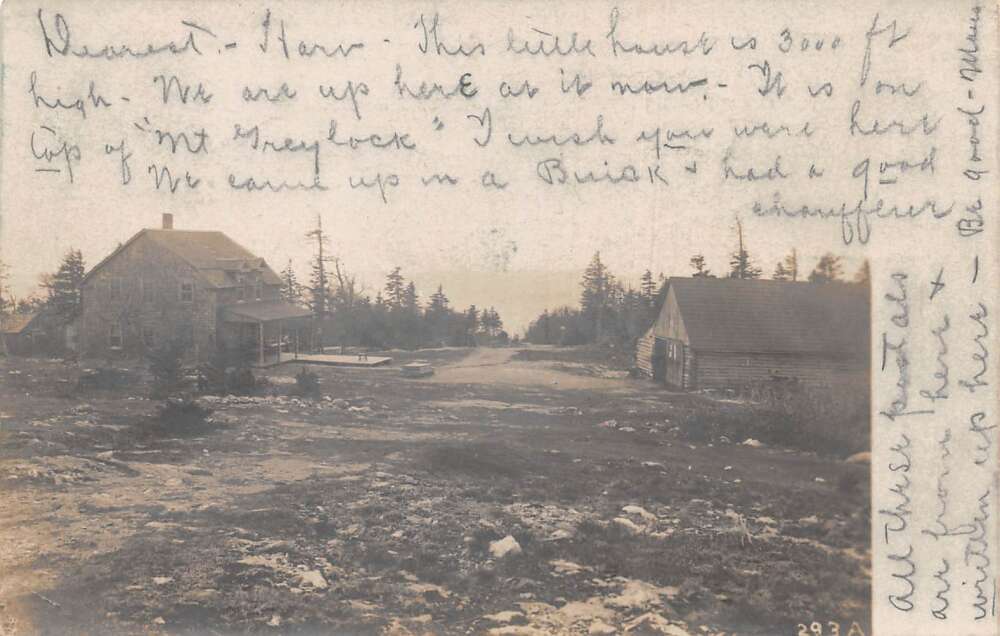 Dearest - Harv - This little house is 3000 ft
high - We are up here at it now. - It is on
top of "Mt Greylock" I wish you were here
We came up in a Buick & had a good
chaufferer
All these postals
are from here &
written up here - Be good - 
293 A